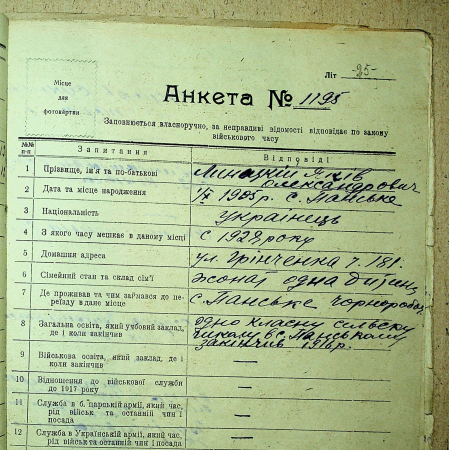 Місце
для
фотокартки
Літ -25-
Анкета № 1195
Заповнюється власноручно, за неправдиві відомості відповідає по закону
військового часу
№№ п-п Запитання Відповіді
1 Прізвище, ім'я та по-батькові Яків
Олександрович
2 Дата та місце народження 1/X 1905 р. с. Панське
3 Національність Українець
4 З якого часу мешкає в даному місці с 1929 року
5 Домашня адреса ул. Грінченка ч. 181.
6 Сімейний стан та склад сім'ї жонат одна дитина
7 Де проживав та чим займався до пе-
реїзду в дане місце с. Панське чорнороб
8 Загальна освіта, який учбовий заклад,
де і коли закінчив одно класну сильську
школу в с. Панському
закінчив 1916 р.
9 Військова освіта, який заклад, де і
коли закінчив —
10 Відношення до військової служби
до 1917 року —
11 Служба в б. царській армії, який час,
рід військ та останній чин і
посада —
12 Служба в Українській армії, який час,
рід військ та останній чин і посада —